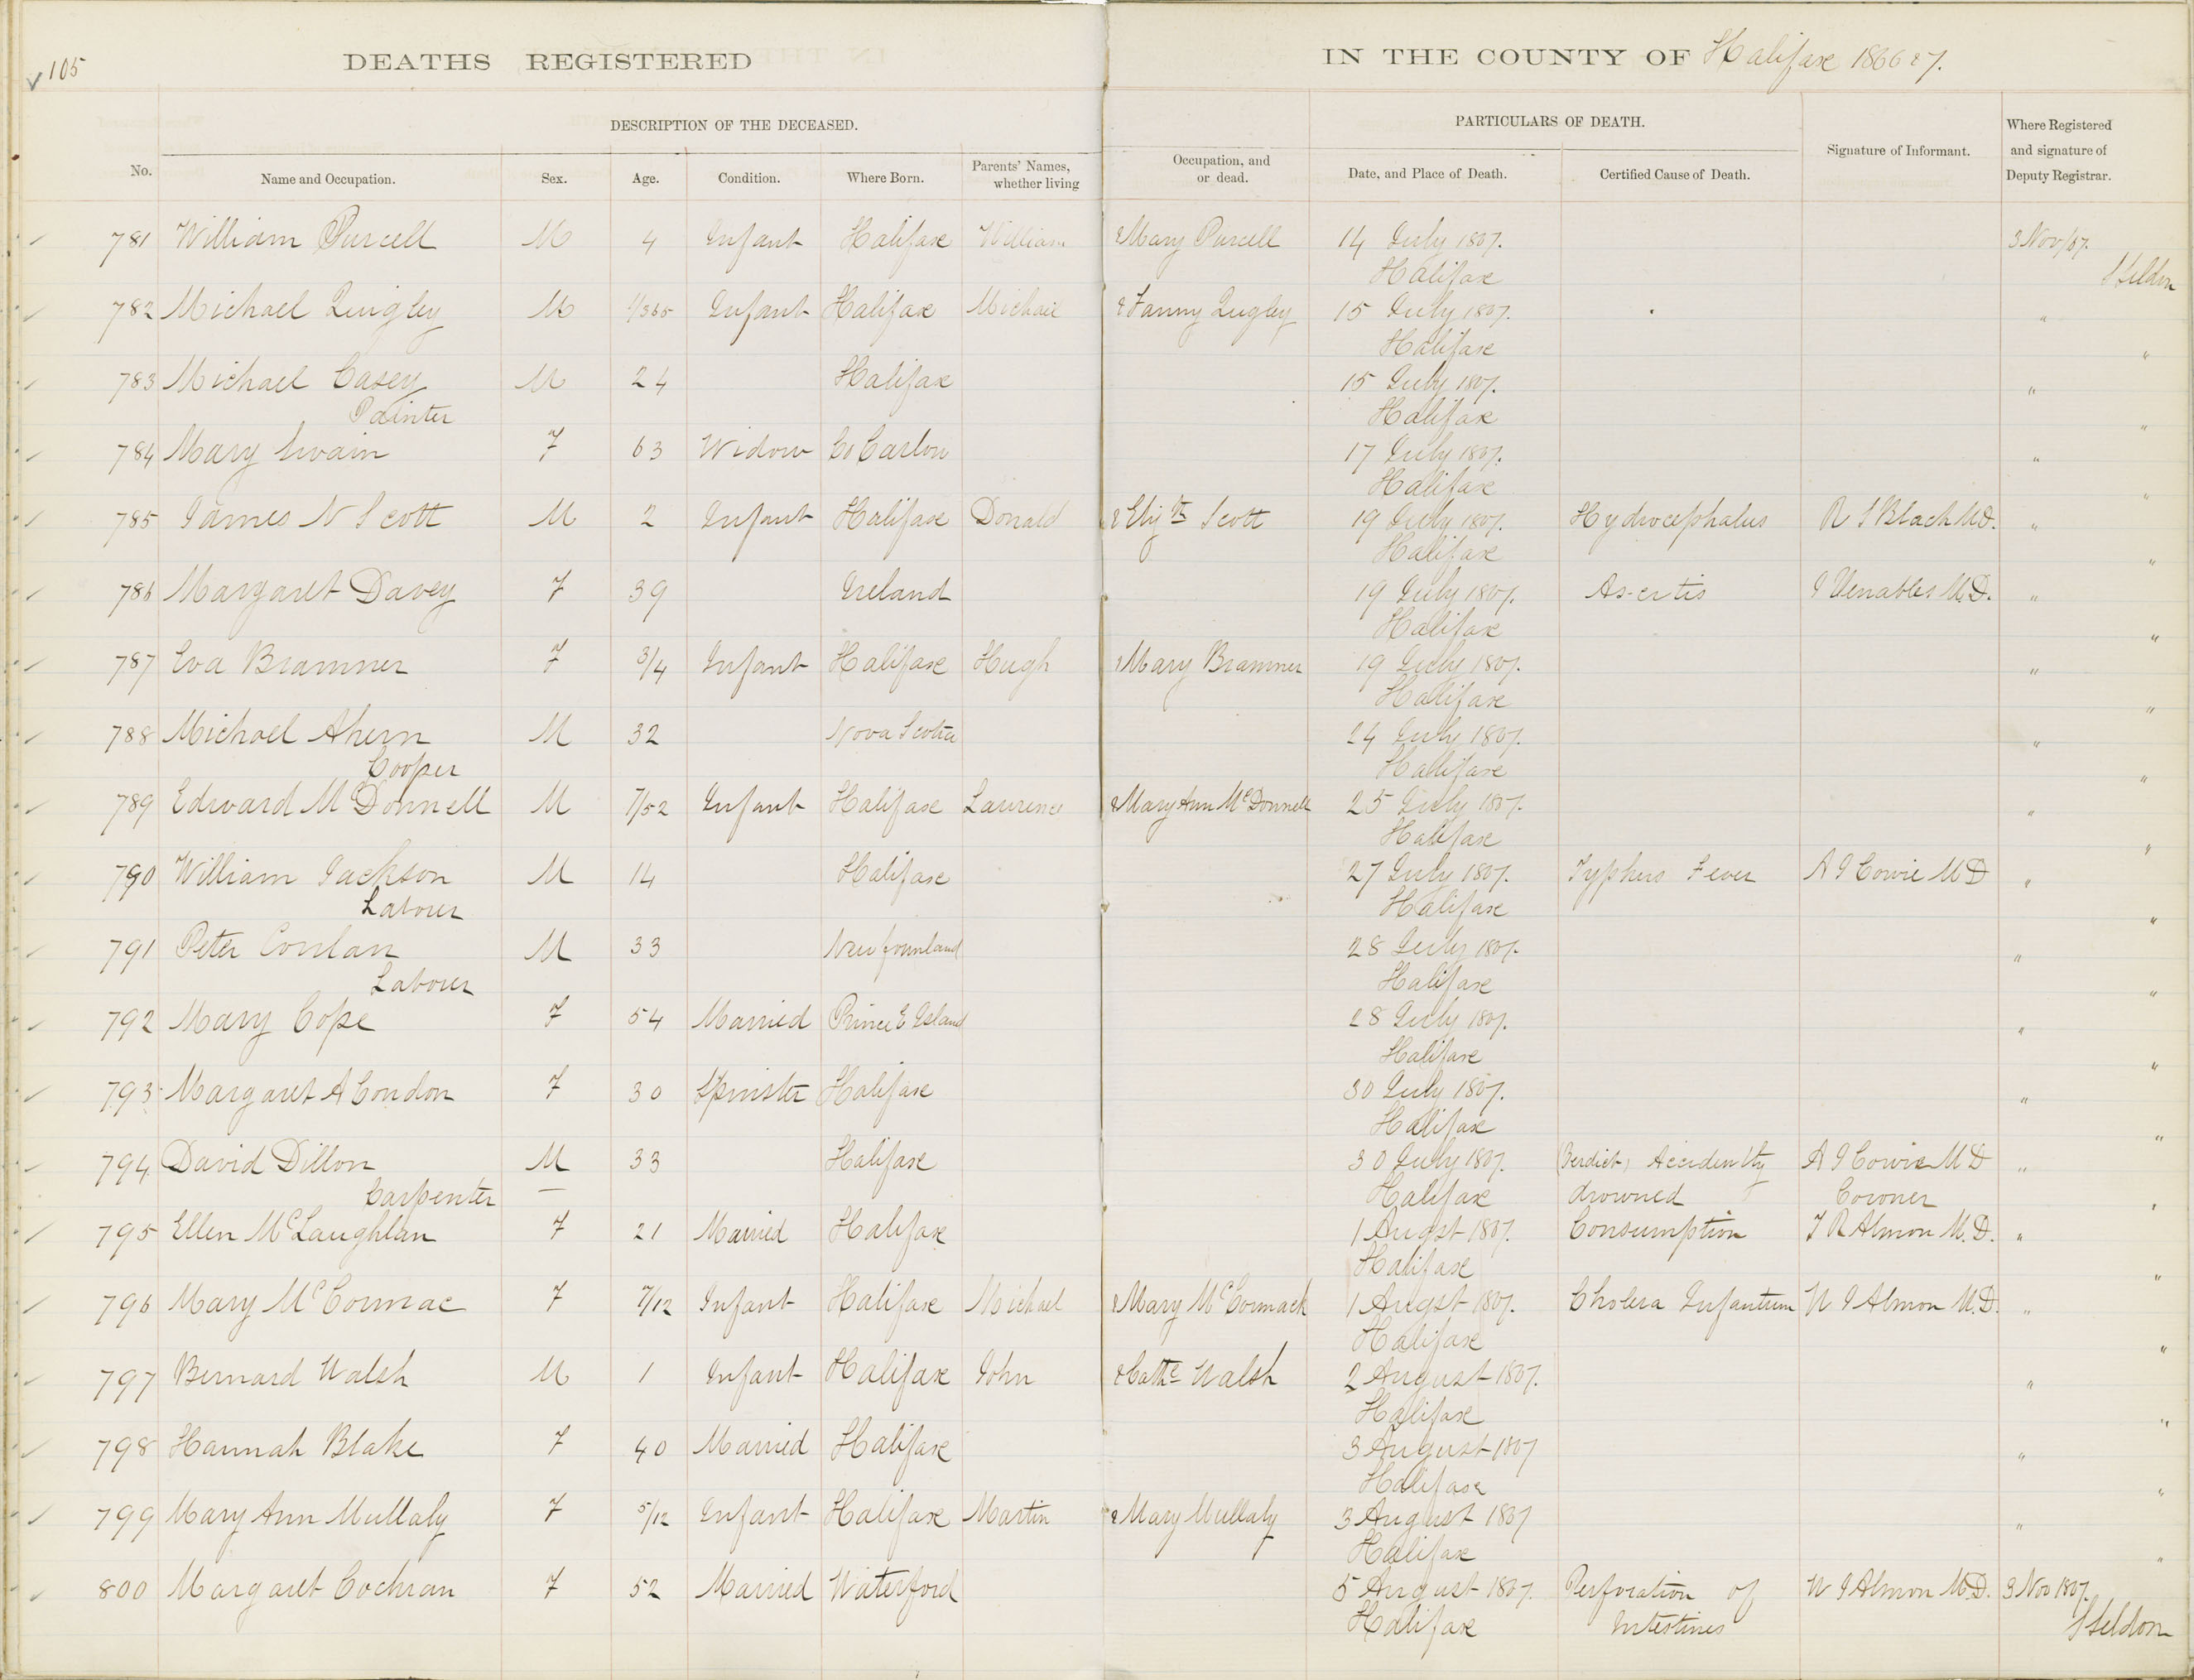 105
DEATHS REGISTERED IN THE COUNTY OF Halifax 1866 & 7.
DESCRIPTION OF THE DECEASED. PARTICULARS OF DEATH.
No. Name and Occupation. Sex. Age. Condition. Where Born. Parents' Names, whether living Occupation, and or dead. Date, and Place of Death. Certified Cause of Death. Signature of Informant. Where Registered and signature of Deputy Registrar.
781 William Purcell M 4 Infant Halifax William & Mary Purcell 14 July 1867. 3 Nov/67.
Halifax Sheldon
782 Michael Quigley M 1/365 Infant Halifax Michael & Fanny Qugley 15 July 1867. "
Halifax "
783 Michael Casey M 24 Halifax 15 July 1867. "
Painter Halifax "
784 Mary Swain F 63 Widow Co Carlow 17 July 1867. "
Halifax "
785 James N Scott M 2 Infant Halifax Donald & Elizth Scott 19 July 1867. Hydrocephalus R S Black M.D. "
Halifax "
786 Margaret Davey F 39 Ireland 19 July 1867. As-citis J Venables M.D. "
Halifax "
787 Eva Bramner F 3/4 Infant Halifax Hugh & Mary Bramner 19 July 1867. "
Halifax "
788 Michael Ahern M 32 Nova Scotia 24 July 1867. "
Cooper Halifax "
789 Edward McDonnell M 7/52 Infant Halifax Laurence & Mary Ann McDonnell 25 July 1867. "
Halifax "
790 William Jackson M 14 Halifax 27 July 1867. Typhus Fever A J Cowie M D "
Labourer Halifax "
791 Peter Conlan M 33 Newfounland 28 July 1867. "
Labourer Halifax "
792 Mary Cope F 54 Married Prince E Island 28 July 1867. "
Halifax "
793 Margaret A Condon F 30 Spinster Halifax 30 July 1867. "
Halifax "
794 David Dillon M 33 Halifax 30 July 1867. (Verdict) Accidently A J Cowie M D "
Carpenter Halifax drowned Coroner "
795 Ellen McLaughlan F 21 Married Halifax 1 Augst 1867. Consumption T R Almon M.D. "
Halifax "
796 Mary McCormac F 7/12 Infant Halifax Michael & Mary McCormack 1 Augst 1867. Cholera Infantum W J Almon M.D. "
Halifax "
797 Bernard Walsh M 1 Infant Halifax John & Cathe Walsh 2 August 1867. "
Halifax "
798 Hannah Blake F 40 Married Halifax 3 August 1867 "
Halifax "
799 Mary Ann Mullaly F 5/12 Infant Halifax Martin & Mary Mullaly 3 August 1867 "
Halifax "
800 Margaret Cochran F 52 Married Waterford 5 August 1867. Perforation of W J Almon M.D. 3 Nov 1867.
Halifax Intestines Sheldon